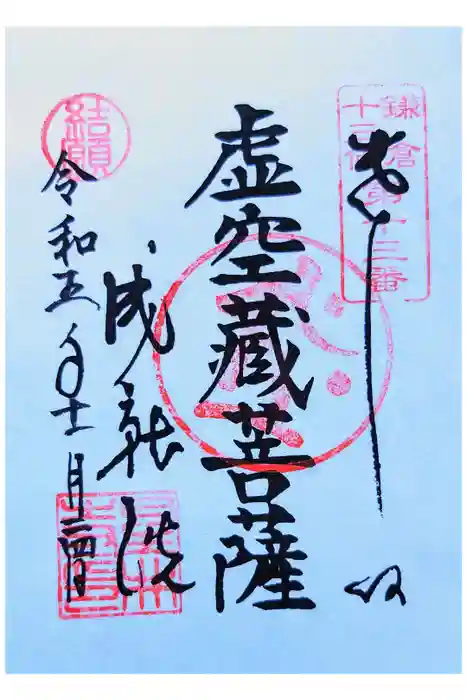 鎌倉
十三仏
第十三番
奉拝
虚空蔵菩薩
成就院
結願
令和五年十一月